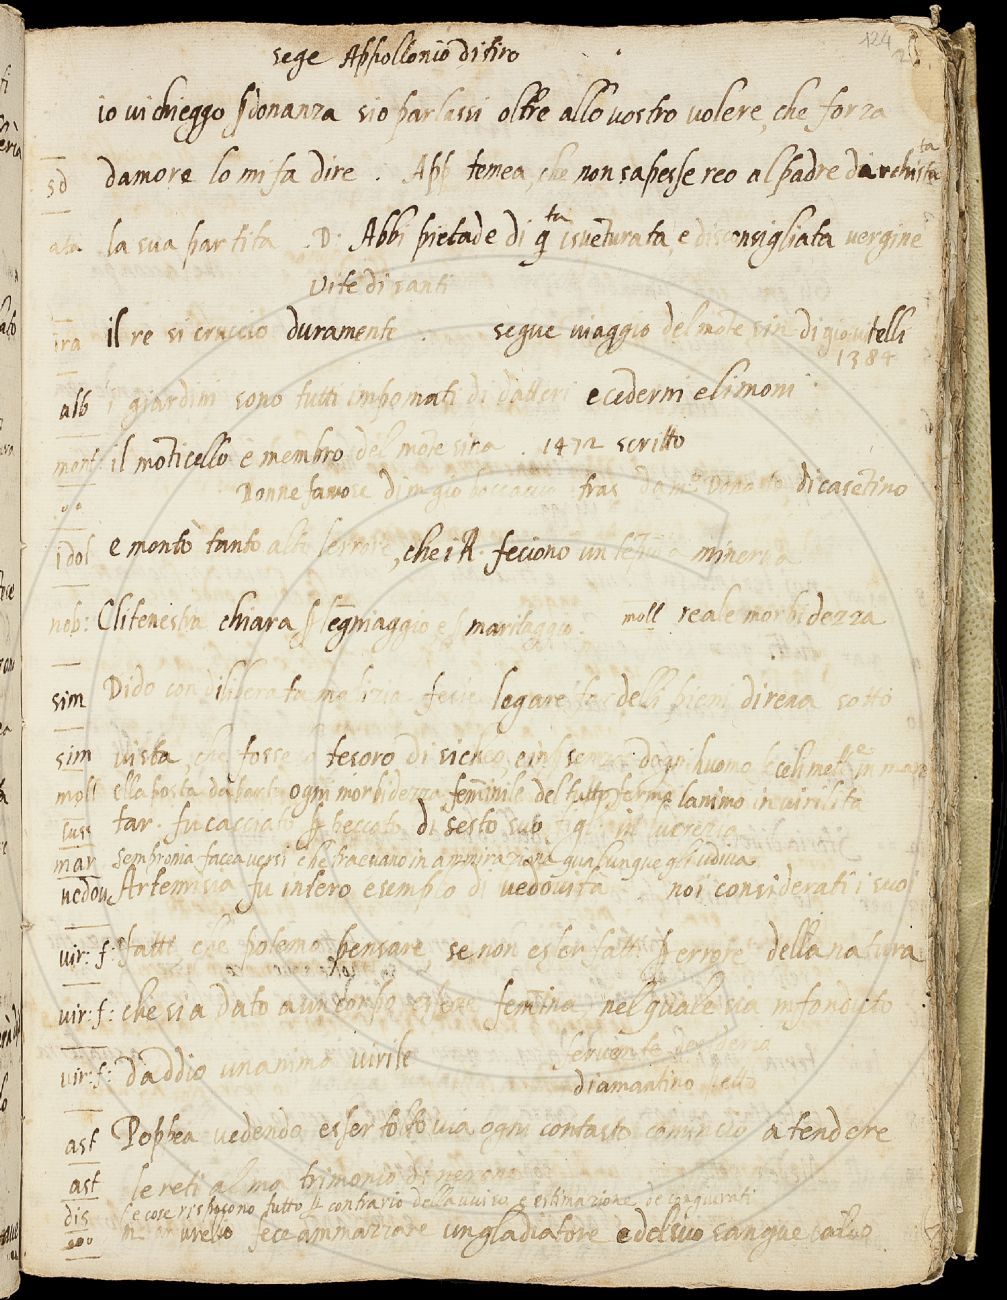 124
sege Appollonio di tiro
io vi chieggo perdonanza sio parlassi oltre allo vostro volere, che forza
sd damore lo mi fa dire . App temea, che non sapesse reo al padre darchista
ata la sua partita . D: Abbi pietade di qta isveturata, e disconsigliata vergine
vite di santi
ira il re si cruccio duramente . segue viaggio del mote sin di gio: vitelli
1384
alb i giardini sono tutti imbomati di datteri e cederni e limoni
mont: il moticello è membro del mote sina . 1472 scritto
Donne famose di m gio boccaccio tras da mo Donato di casetino
idol e montò tanto alto lerrore, che i R. feciono un tepio a minerva
nob: Clitenestra chiara p legniaggio e p maritaggio . moll reale morbidezza
sim Dido con dilibera ta malizia fecie legare fardelli pieni di rena sotto
sim vista, che fosse tesoro di sicheo, dogni huomo celi mette in mare
moll ella posta da parte ogni morbidezza feminile del tutto fermo lanimo in virilita
luss tar. fu cacciato p peccato di sesto suo figl in lucrezia
mar sempronia facea versi che traevano in ammirazione qualunque gli udiva
vedov Artemisia fu intero esemplo di vedovità noi considerati i suoi
vir: f: fatti, che potemo pensare se non esser fatti p errore della natura
vir: f: che sia dato a un corpo essere femina nel quale sia infonduto
vir: f: daddio unanima virile
fervente desderia
diamantino petto
ast Poppea vedendo esser tolto via ogni contasto cominciò a tendere
ast le reti al ma trimonio di nerone
dis le cose risposono tutto p contrario dellavviso e estimazione de congiurati
fece ammazzare un gladiatore e del suo sangue